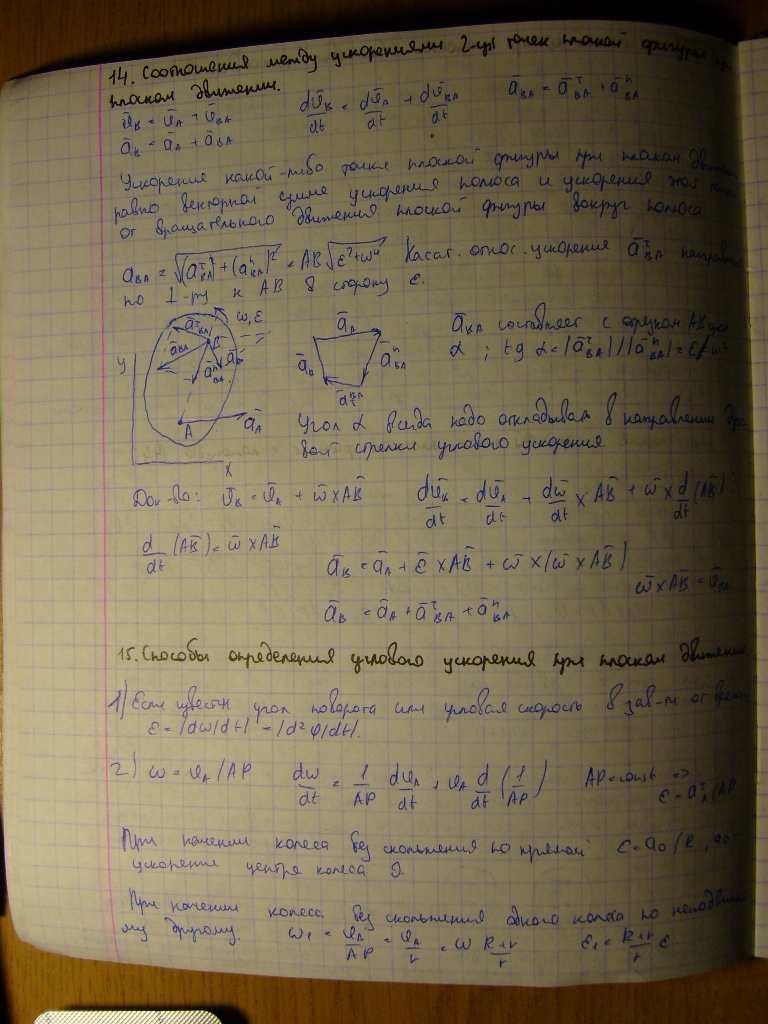 14. Соотношения между ускорениями 2-ух точек плоской фигуры при
плоском движении.
v̄_B = v̄_A + v̄_BA
dv̄_B/dt = dv̄_A/dt + dv̄_BA/dt
ā_BA = ā^τ_BA + ā^n_BA
ā_B = ā_A + ā_BA
Ускорение какой-либо точки плоской фигуры при плоском движении
равно векторной сумме ускорения полюса и ускорения этой точки
от вращательного движения плоской фигуры вокруг полюса
a_BA = √((a^τ_BA)² + (a^n_BA)²) = AB √(ε²+ω⁴) Касат. относ. ускорение ā^τ_BA направлено
по ⊥-ру к AB в сторону ε.
ā^τ_BA
ω, ε
ā_BA
B
ā_B
ā^n_BA
y
A
ā_A
x
ā_A
ā_B
ā^n_BA
ā^τ_BA
ā_BA составляет с отрезком AB угол
α ; tg α = |ā^τ_BA| / |ā^n_BA| = ε/ω²
Угол α всегда надо откладывать в направлении
стрелки углового ускорения
Док-во: v̄_B = v̄_A + ω̄ × AB̄
dv̄_B/dt = dv̄_A/dt + dω̄/dt × AB̄ + ω̄ × d/dt (AB̄)
d/dt (AB̄) = ω̄ × AB̄
ā_B = ā_A + ε̄ × AB̄ + ω̄ × (ω̄ × AB̄)
ω̄ × AB̄ = v̄_BA
ā_B = ā_A + ā^τ_BA + ā^n_BA
15. Способы определения углового ускорения при плоском движении.
1) Если известн угол поворота или угловая скорость в зав-ти от времен
ε = |dω/dt| = |d²φ/dt|.
2) ω = v_A/AP
dω/dt = 1/AP dv_A/dt + v_A d/dt (1/AP)
AP = const =>
ε = a^τ_A/AP
При качении колеса без скольжения по прямой ε = a_0/R, a_0 -
ускорение центра колеса O
При качении колеса без скольжения одного колеса по неподвижно
му другому. ω_1 = v_A/AP = v_A/r = ω (R+r)/r
ε_1 = (R+r)/r ε.